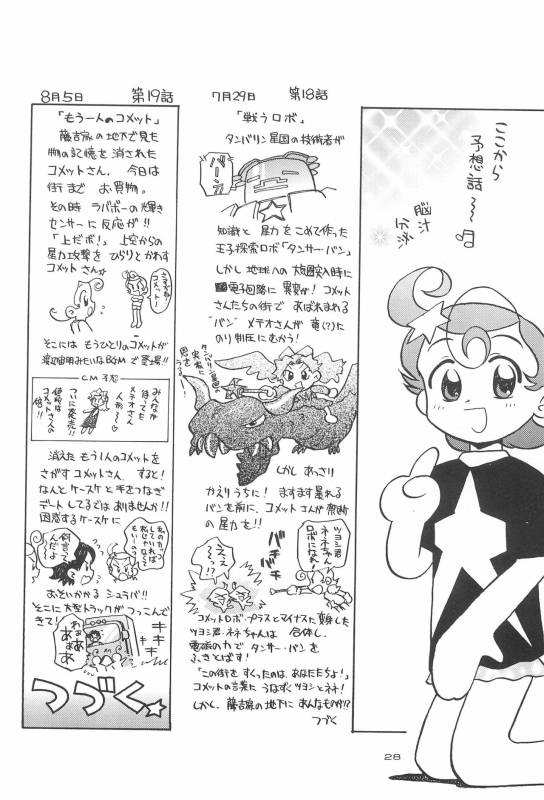 ここから
予想話〜〜♪
脳汁
分泌
7月29日　第18話
「戦うロボ」
タンバリン星国の技術者が
バーン
知識と星力をこめて作った
王子探索ロボ「タンサー・バン」
しかし地球への大気圏突入時に
電子回路に異常が！コメット
さんたちの街であばれまわる
"バン" メテオさんが竜(?)た
のり制圧にむかう！
しかしあっさり
かえりうちに！ますます暴れる
バンを前に、コメットさんが禁断
の星力を!!
ツヨシ君
ネネちゃん
ロボになれ！
バチバチ
ええぇ
〜〜!?
コメットロボ・プラスとマイナスに変身した
ツヨシ君・ネネちゃんは合体し、
電磁の力でタンサー・バンを
ふきとばす！
「この街をすくったのはあなたたちよ！」
コメットの言葉にうなずくツヨシとネネ！
しかし、藤吉家の地下にあんなものが!?
つづく
8月5日　第19話
「もう一人のコメット」
藤吉家の地下で見た
物の記憶を消された
コメットさん、今日は
街までお買物。
その時ラバボーの輝き
センサーに反応が!!
「上だボ！」上空からの
星力攻撃をひらりとかわす
コメットさん☆
そこにはもうひとりのコメットが
渡辺宙明みたいなBGMで登場!!
CM予想
みんなが
待ってた
メテオさん
人形〜♡
ついに発売!!
使用は
コメットさんの
倍!!
消えたもう1人のコメットを
さがすコメットさん、すると！
なんとケースケと手をつなぎ
デートしてるではありませんか!!
困惑するケースケに
何言って
んだよ
おそいかかるシュラバ!!
そこに大型トラックがつっこんで
きて！
キキキー
わぁ
あぁぁ
あぁ
つづく☆
28